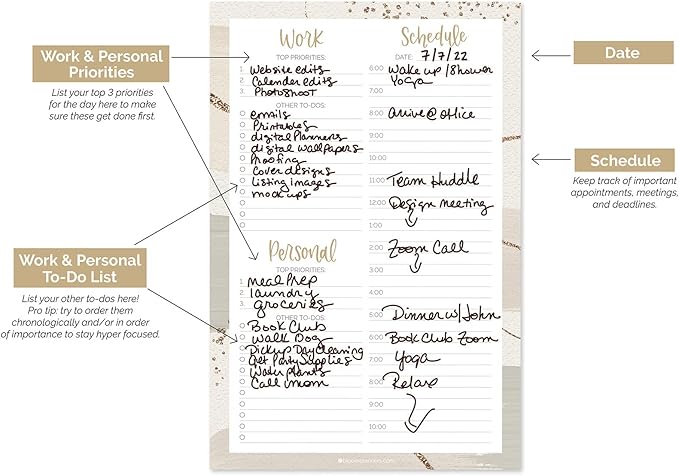 Work & Personal
Priorities
List your top 3 priorities
for the day here to make
sure these get done first.
Work & Personal
To-Do List
List your other to-dos here!
Pro tip: try to order them
chronologically and/or in order
of importance to stay hyper focused.
Work
TOP PRIORITIES:
1. Website edits
2. Calender edits
3. Photoshoot
OTHER TO-DOS:
emils
Printables
digital Planners
digital wallpapers
Proofing
Cover designs
Listing images
mockups
Personal
TOP PRIORITIES:
1. meal Prep
2. laundry
3. groceries
OTHER TO-DOS:
Book Club
Walk Dog
Pickup Day Cleaning
Get Party Supplies
Water Plants
Call mom
Schedule
DATE: 7/7/22
6:00 Wake up / Shower
Yoga
7:00
8:00 arrive @ office
9:00
10:00
11:00 Team Huddle
12:00 Design meeting
1:00
2:00 Zoom Call
3:00
4:00
5:00 Dinner w/ John
6:00 Book Club Zoom
7:00 Yoga
8:00 Relax
9:00
10:00
bloomplanners.com
Date
Schedule
Keep track of important
appointments, meetings,
and deadlines.